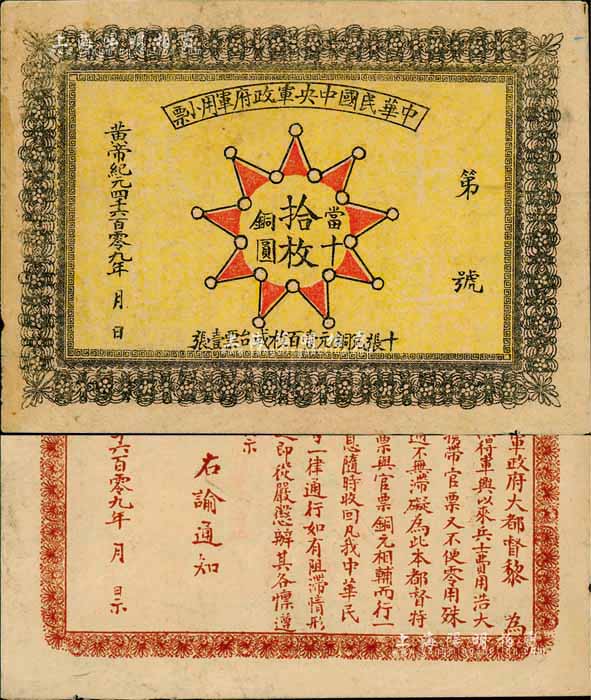 中華民國中央軍政府軍用小票
第 號
當十
拾枚
銅圓
黄帝紀元四千六百零九年 月 日
十張兑銅元壹百枚或台票壹張
軍政府大都督黎 為
得軍興以來兵士費用浩大
携帶官票又不便零用殊
不無滯礙為此本都督特
票與官票銅元相輔而行一
息隨時收回凡我中華民
一律通行如有阻滯情形
即從嚴懲辦其各懍遵
示
右諭通知
六百零九年 月 日示